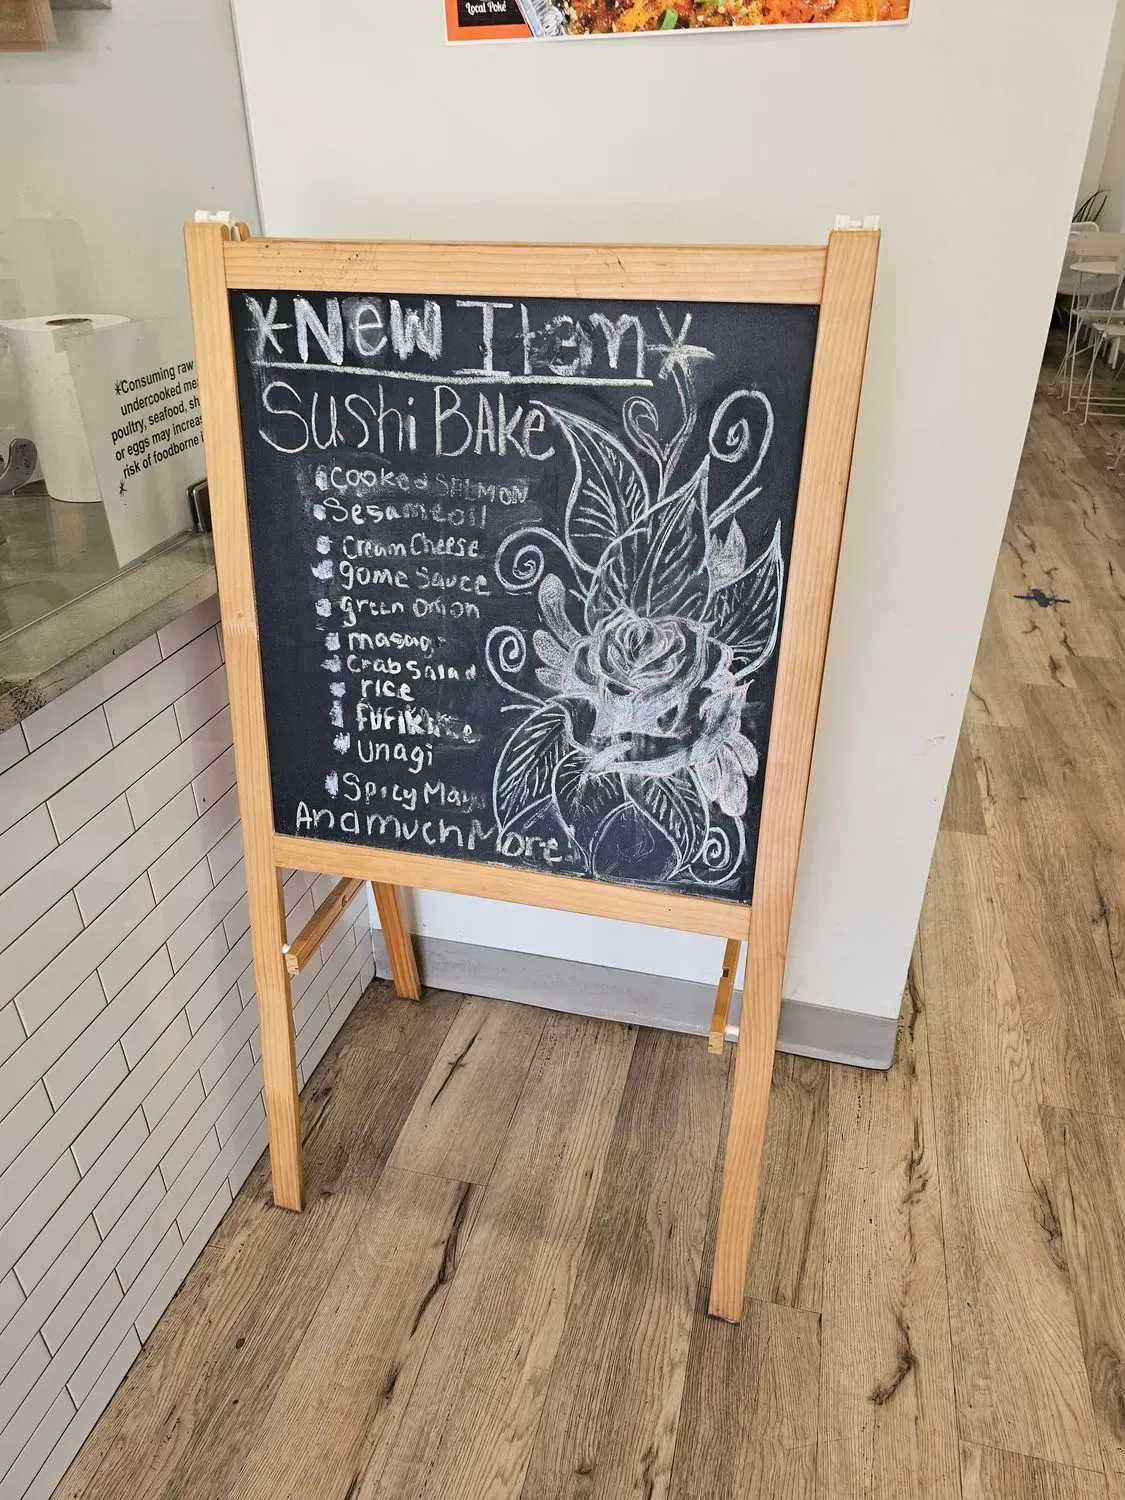 Local Poké
*New Item*
Sushi BAke
Cooked SALMON
Sesame oil
Cream Cheese
gome Sauce
green Onion
masag
Crab Salad
rice
furikake
Unagi
Spicy Mayo
And much More!
*Consuming raw
undercooked me
poultry, seafood, sh
or eggs may increas
risk of foodborne i
*